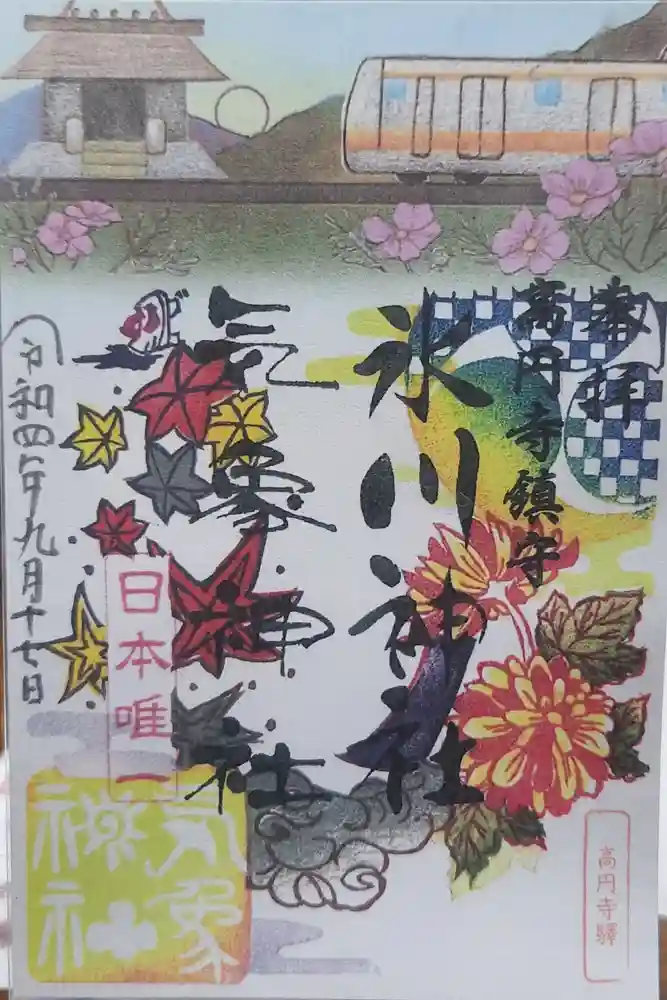 奉拝
高円寺鎮守
氷川神社
気象神社
令和四年九月十七日
日本唯一
気象
神社
高円寺驛